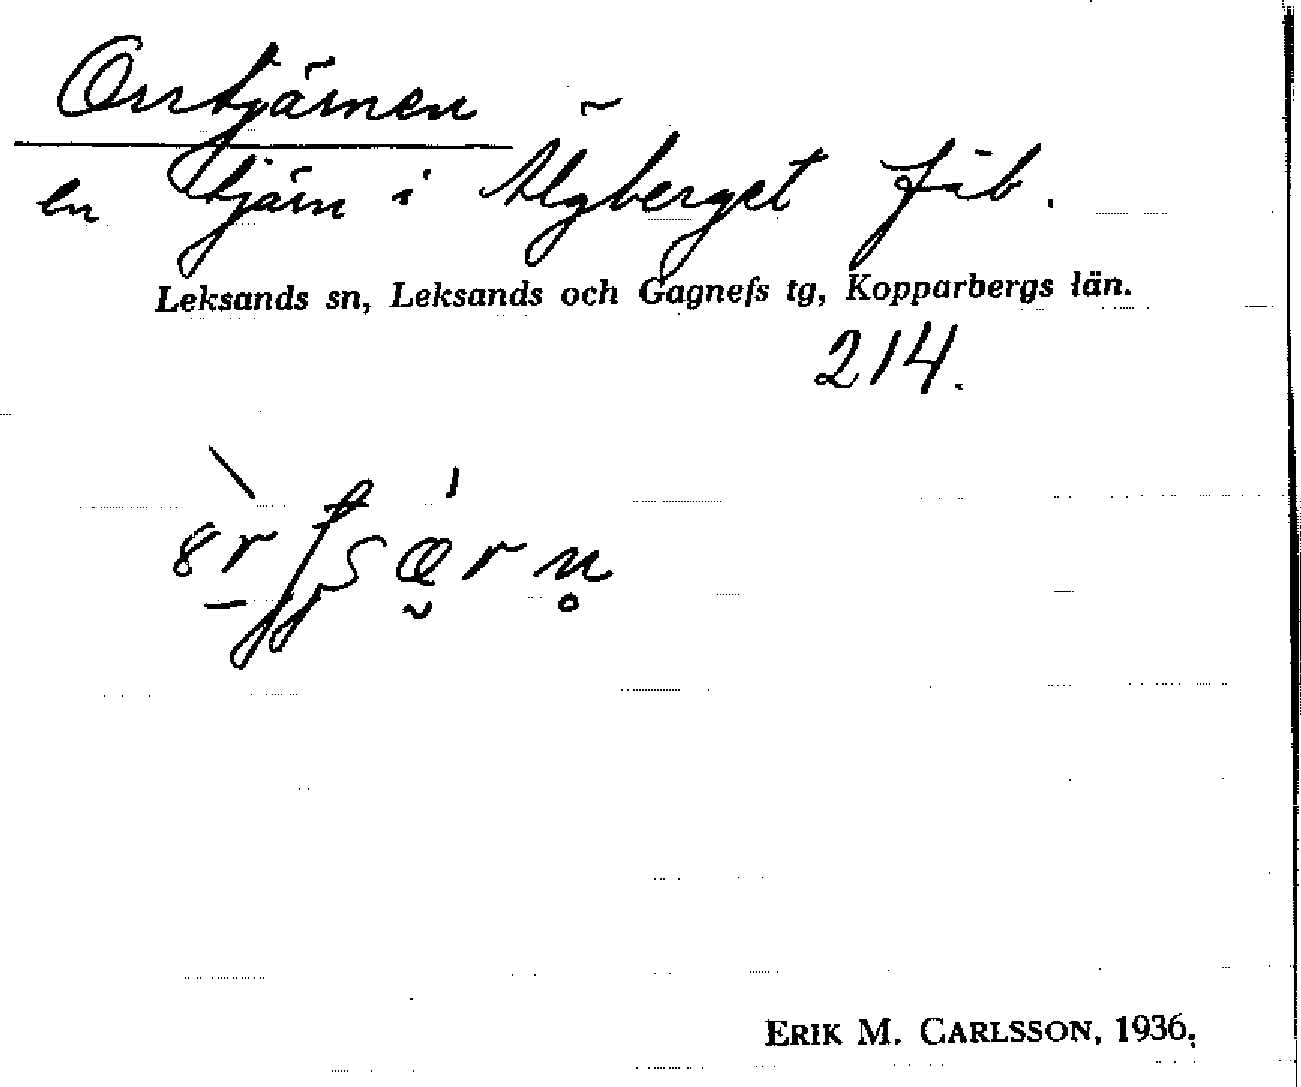 Orrtjärnen
en tjärn i Älgberget fäb.
Leksands sn, Leksands och Gagnefs tg, Kopparbergs län.
214.
ERIK M. CARLSSON, 1936.